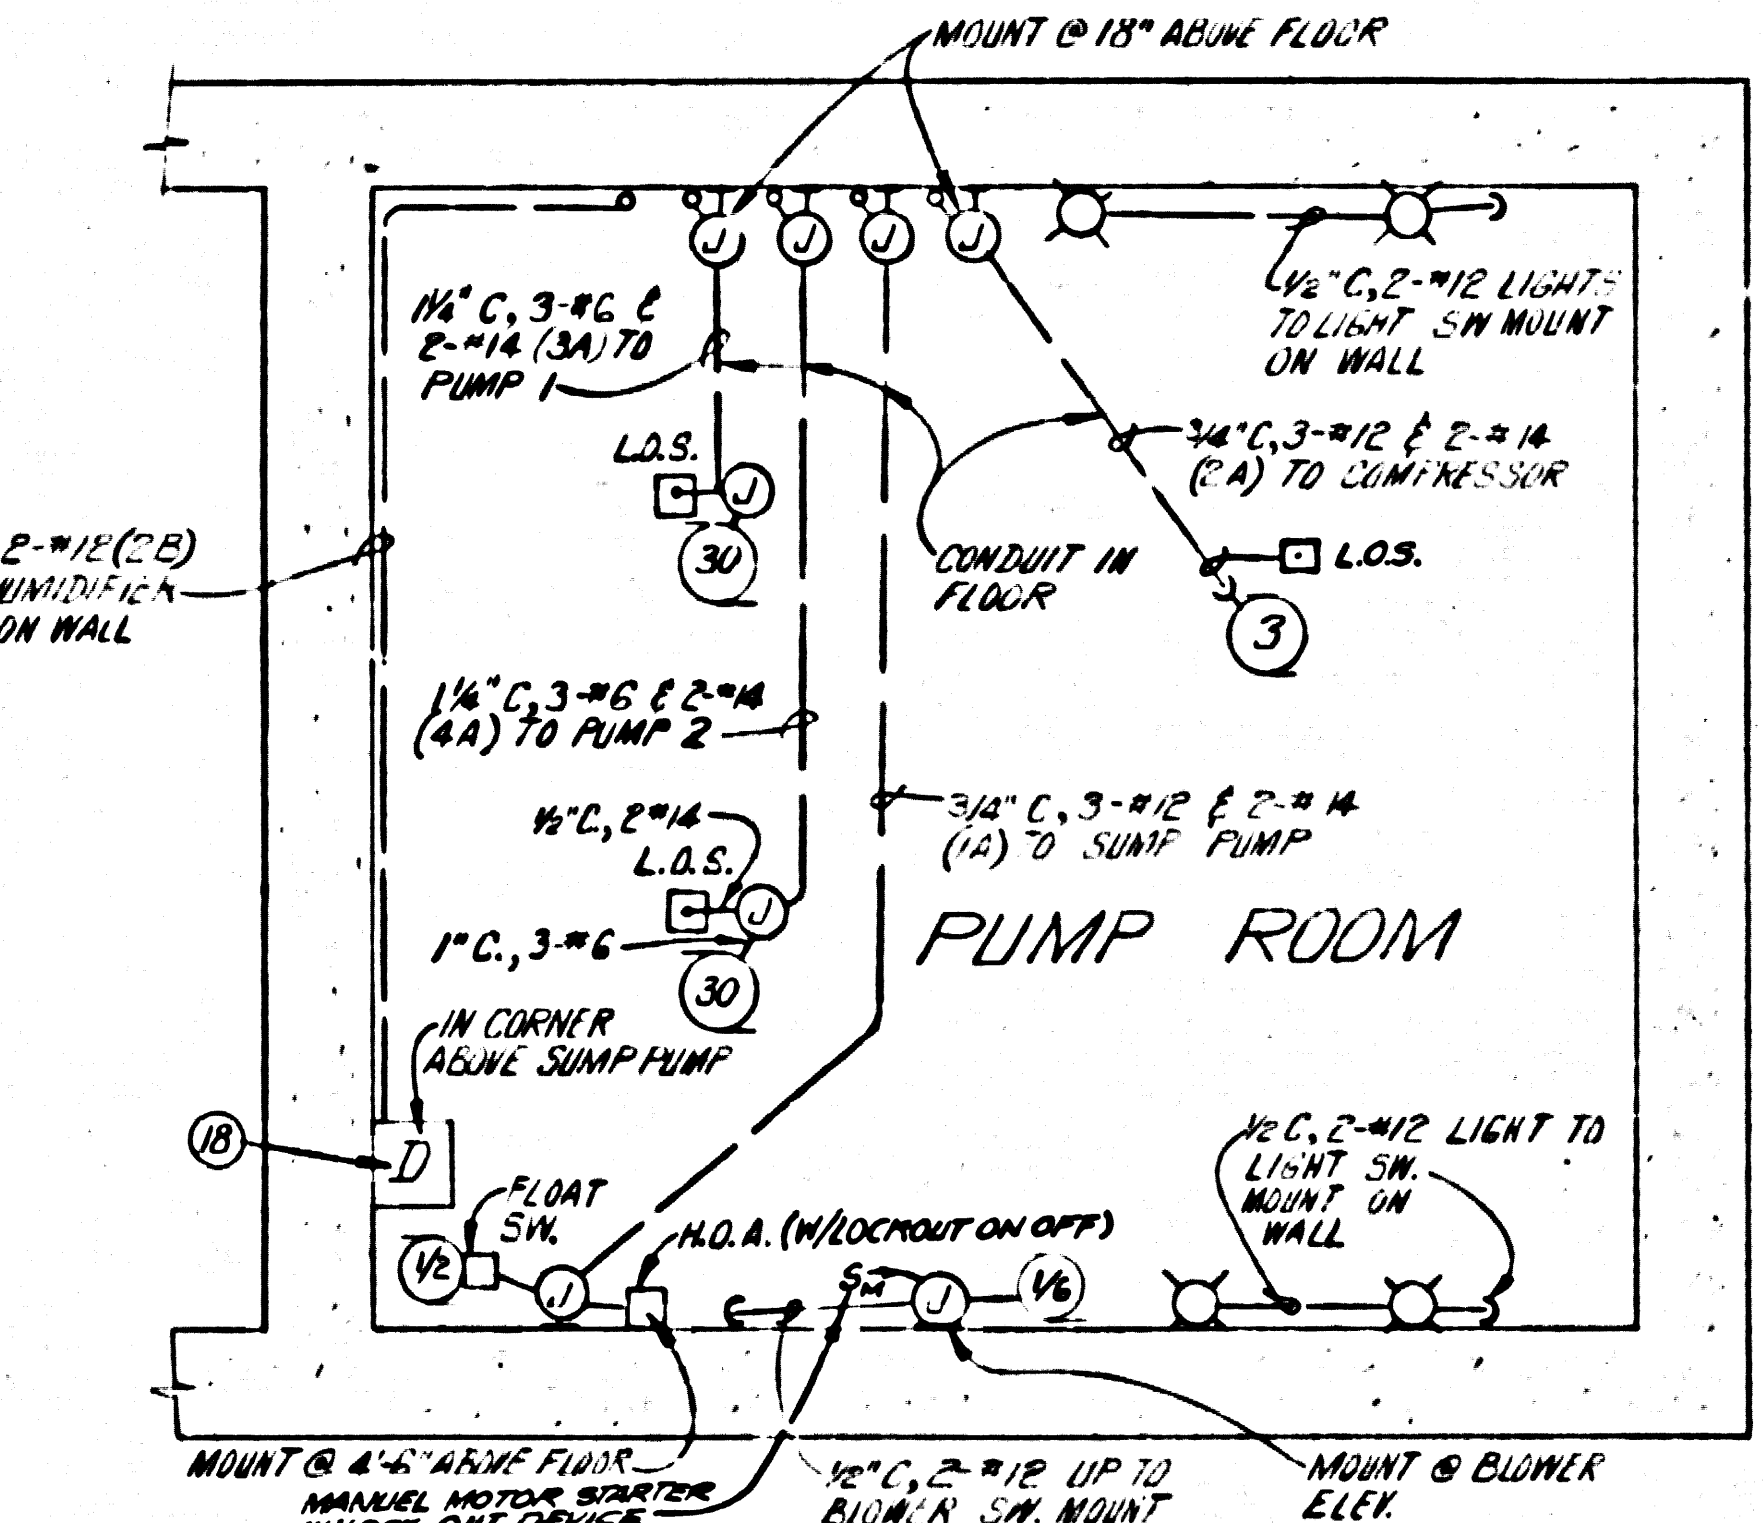 MOUNT @ 18" ABOVE FLOOR
J J J J
1/2" C, 2-#12 LIGHTS
TO LIGHT SW MOUNT
ON WALL
1 1/4" C, 3-#6 &
2-#14 (3A) TO
PUMP 1
L.O.S.
J
30
3/4" C, 3-#12 & 2-#14
(2A) TO COMPRESSOR
CONDUIT IN
FLOOR
L.O.S.
3
2-#12 (2B)
ON WALL
1 1/4" C, 3-#6 & 2-#14
(4A) TO PUMP 2
3/4" C, 3-#12 & 2-#14
(1A) TO SUMP PUMP
1/2" C., 2 #14
L.O.S.
J
1" C., 3-#6
30
PUMP ROOM
IN CORNER
ABOVE SUMP PUMP
18
D
FLOAT
SW.
1/2
J
H.O.A. (W/LOCKOUT ON OFF)
SM
J
1/6
1/2 C, 2-#12 LIGHT TO
LIGHT SW.
MOUNT ON
WALL
MOUNT @ 4'-6" ABOVE FLOOR
MANUEL MOTOR STARTER
DEVICE
1/2" C, 2-#12 UP TO
BLOWER SW. MOUNT
MOUNT @ BLOWER
ELEV.